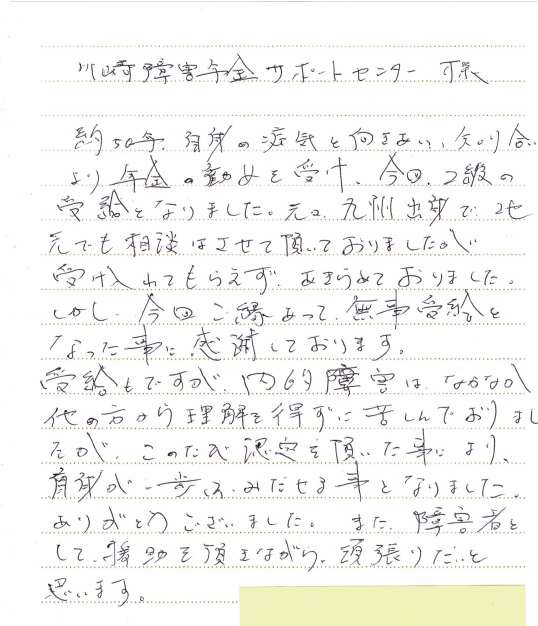 川崎障害年金サポートセンター 様
約50年、自身の病気と向きあい、知り合い
より年金の勧めを受け、今回、2級の
受給となりました。元々、九州出身で地
元でも相談はさせて頂いておりましたが
受け入れてもらえず、あきらめておりました。
しかし、今回ご縁あって、無事受給と
なった事に感謝しております。
受給もですが、内的障害は、なかなか
他の方から理解を得ずに苦しんでおりまし
たが、このたび認定を頂いた事により、
自身が一歩ふみだせる事となりました。
ありがとうございました。また、障害者と
して、援助を頂きながら、頑張りたいと
思います。